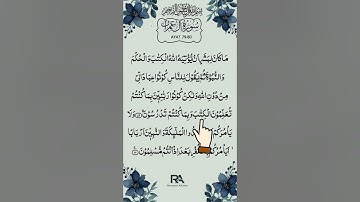 بِسْمِ اللّٰهِ الرَّحْمٰنِ الرَّحِيْمِ
سُوْرَةُ اٰلِ عِمْرَانَ
AYAT 79-80
مَا كَانَ لِبَشَرٍ اَنْ يُّؤْتِيَهُ اللّٰهُ الْكِتٰبَ وَالْحُكْمَ
وَالنُّبُوَّةَ ثُمَّ يَقُوْلَ لِلنَّاسِ كُوْنُوْا عِبَادًا لِّيْ
مِنْ دُوْنِ اللّٰهِ وَلٰكِنْ كُوْنُوْا رَبّٰنِيّٖنَ بِمَا كُنْتُمْ
تُعَلِّمُوْنَ الْكِتٰبَ وَبِمَا كُنْتُمْ تَدْرُسُوْنَ ۙ وَلَا
يَاْمُرَكُمْ الْمَلٰٓئِكَةَ وَالنَّبِيّٖنَ اَرْبَابًا
اَيَاْمُرُكُمْ بَعْدَ اِذْ اَنْتُمْ مُّسْلِمُوْنَ
RA